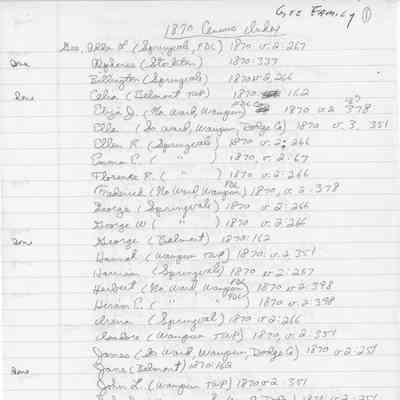 Gee Family ①
1870 Census Index
Gee, Adda L (Springvale, FDL) 1870 v.2:267
Done Alpheus (Stockton) 1870:337
Billington (Springvale) 1870 v.2,266
Done Celia (Belmont Twp) 1870: 162
Eliza J. (No. Ward, Waupun FDL Co) 1870 v.2 378
Ella (So. Ward, Waupun, Dodge Co) 1870 v. 3. 351
Ellen R. (Springvale) 1870 v.2:266
Emma C. ( " ) 1870, v.2:67
Florence R. ( " ) 1870 v.2:266
Frederick (No. Ward Waupun FDL) 1870, v.2:378
George (Springvale) 1870 v.2:266
George W ( " ) 1870 v.2:266
Done George (Belmont) 1870:162
Hannah (Waupun Twp) 1870: v.2 351
Harrison (Springvale) 1870 v.2:267
Herbert (No. Ward Waupun FDL) 1870 v.2:398
Hiram C. ( " " FDL) 1870 v.2:398
Arena (Springvale) 1870 v.2:266
Isadora (Waupun Twp) 1870, v.2:351
James (So. Ward, Waupun, Dodge Co) 1870 v.2:251
Done Jane (Belmont) 1870:162
John L. (Waupun Twp) 1870 v.2:351